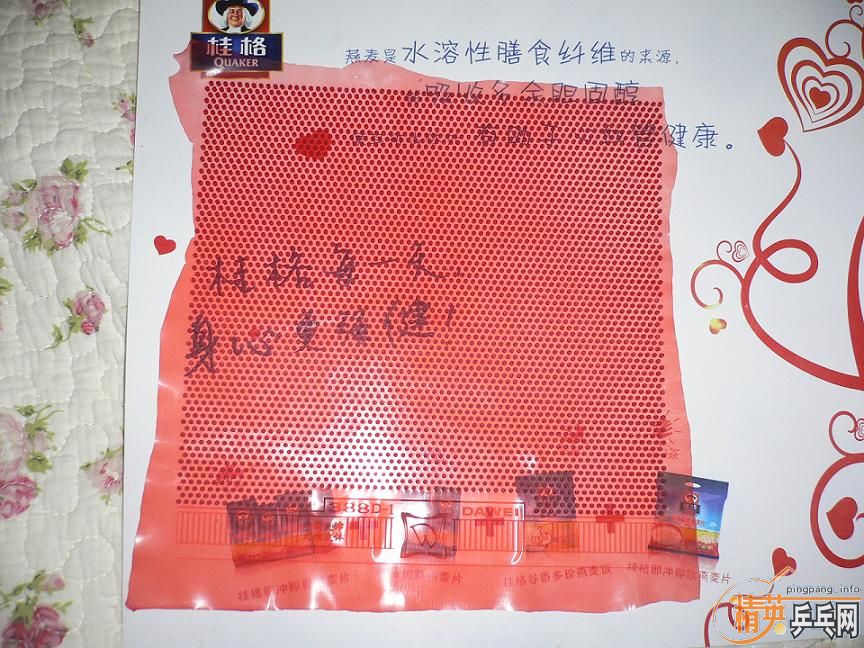 桂格
QUAKER
燕麦是水溶性膳食纤维的来源,
吸收多余胆固醇
有助于心血管健康。
桂格每一天,
身心更强健!
388D-1
DAWEI
桂格即冲即食燕麦片
燕麦片
桂格谷香多珍燕麦饭
桂格即冲即饮燕麦片
pingpang.info
精英乒乓网